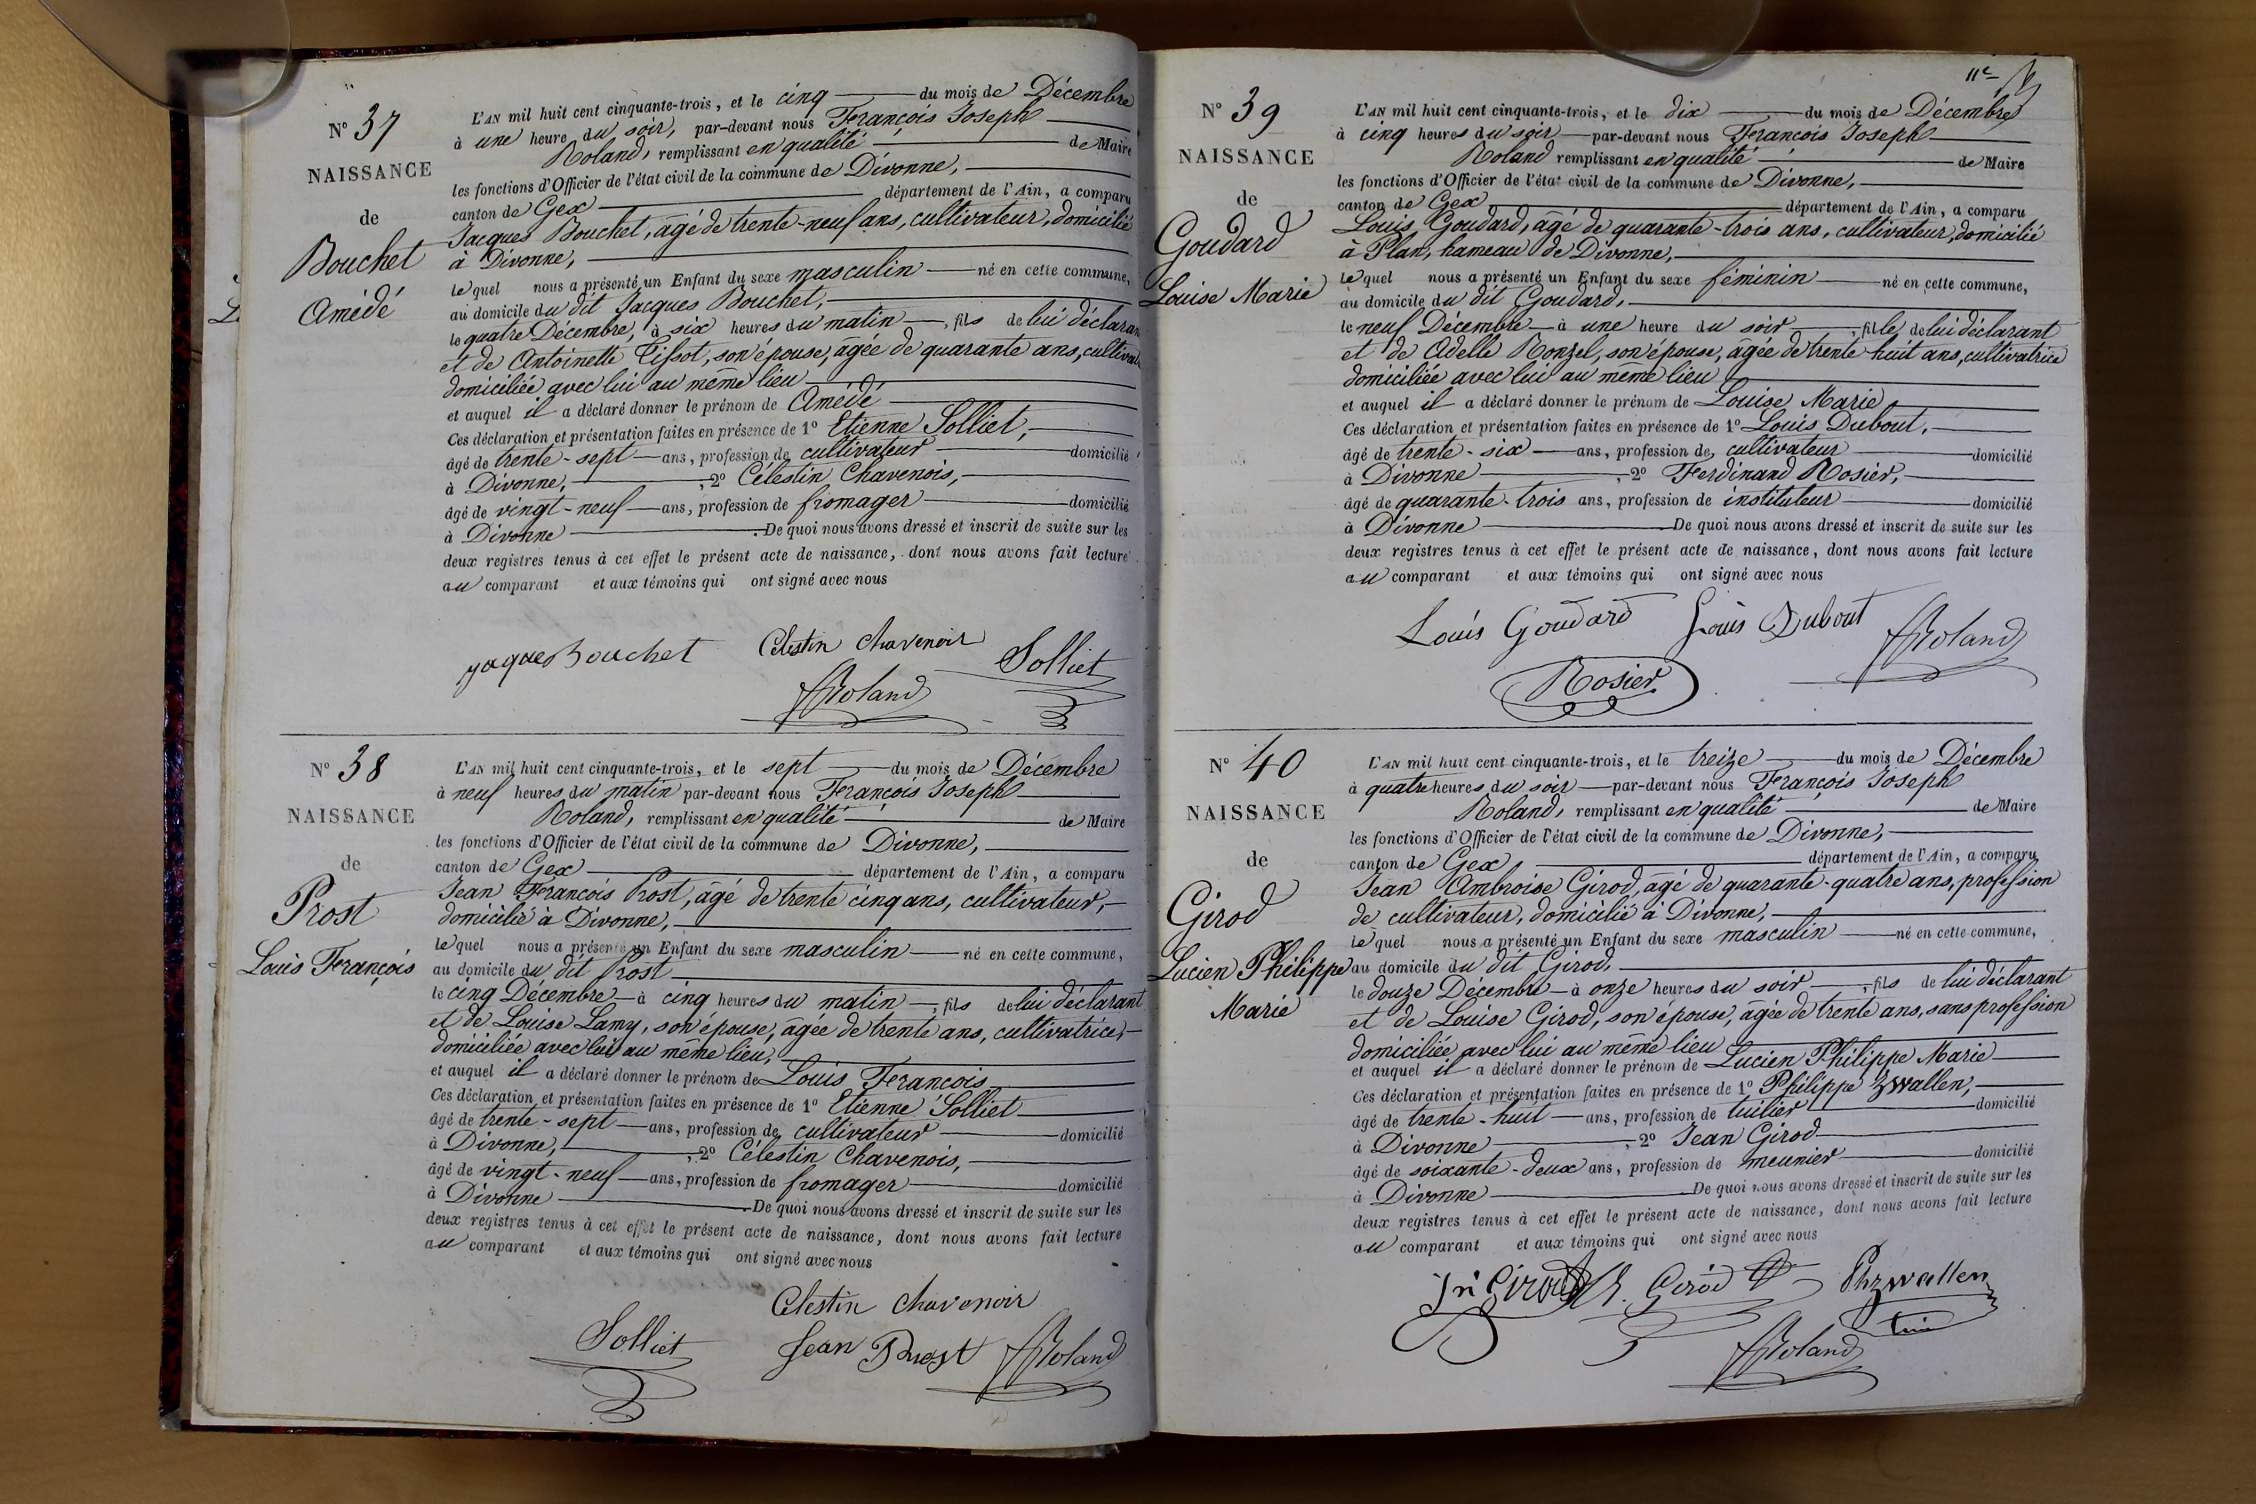 N° 37
NAISSANCE
de
Bouchet
Amédé
L'AN mil huit cent cinquante-trois, et le cinq du mois de Décembre
à une heure du soir, par-devant nous François Joseph
Roland, remplissant en qualité de Maire
les fonctions d'Officier de l'état civil de la commune de Divonne,
canton de Gex département de l'Ain, a comparu
Jacques Bouchet, âgé de trente-neuf ans, cultivateur, domicilié
à Divonne,
lequel nous a présenté un Enfant du sexe masculin né en cette commune,
au domicile du dit Jacques Bouchet,
le quatre Décembre, à six heures du matin, fils de lui déclarant
et de Antoinette Tissot, son épouse, âgée de quarante ans, cultivat
domiciliée avec lui au même lieu
et auquel il a déclaré donner le prénom de Amédé
Ces déclaration et présentation faites en présence de 1° Etienne Solliet,
âgé de trente-sept ans, profession de cultivateur domicilié
à Divonne, , 2° Célestin Chavenois,
âgé de vingt-neuf ans, profession de fromager domicilié
à Divonne . De quoi nous avons dressé et inscrit de suite sur les
deux registres tenus à cet effet le présent acte de naissance, dont nous avons fait lecture
au comparant et aux témoins qui ont signé avec nous
jaques Bouchet Celestin chavenoir Solliet
Roland
N° 38
NAISSANCE
de
Prost
Louis François
L'AN mil huit cent cinquante-trois, et le sept du mois de Décembre
à neuf heures du matin par-devant nous François Joseph
Roland, remplissant en qualité de Maire
les fonctions d'Officier de l'état civil de la commune de Divonne,
canton de Gex département de l'Ain, a comparu
Jean François Prost, âgé de trente cinq ans, cultivateur,
domicilié à Divonne,
lequel nous a présenté un Enfant du sexe masculin né en cette commune,
au domicile du dit Prost
le cinq Décembre à cinq heures du matin, fils de lui déclarant
et de Louise Lamy, son épouse, âgée de trente ans, cultivatrice,
domiciliée avec lui au même lieu,
et auquel il a déclaré donner le prénom de Louis François
Ces déclaration et présentation faites en présence de 1° Etienne Solliet
âgé de trente-sept ans, profession de cultivateur domicilié
à Divonne, , 2° Célestin Chavenois,
âgé de vingt-neuf ans, profession de fromager domicilié
à Divonne . De quoi nous avons dressé et inscrit de suite sur les
deux registres tenus à cet effet le présent acte de naissance, dont nous avons fait lecture
au comparant et aux témoins qui ont signé avec nous
Celestin chavenoir
Solliet Jean Prost Roland
11e
N° 39
NAISSANCE
de
Goudard
Louise Marie
L'AN mil huit cent cinquante-trois, et le dix du mois de Décembre
à cinq heures du soir par-devant nous François Joseph
Roland remplissant en qualité de Maire
les fonctions d'Officier de l'état civil de la commune de Divonne,
canton de Gex département de l'Ain, a comparu
Louis Goudard, âgé de quarante-trois ans, cultivateur, domicilié
à Plan, hameau de Divonne,
lequel nous a présenté un Enfant du sexe féminin né en cette commune,
au domicile du dit Goudard,
le neuf Décembre à une heure du soir, fille de lui déclarant
et de Adelle Ronzel, son épouse, âgée de trente huit ans, cultivatrice
domiciliée avec lui au même lieu
et auquel il a déclaré donner le prénom de Louise Marie
Ces déclaration et présentation faites en présence de 1° Louis Dubout,
âgé de trente-six ans, profession de cultivateur domicilié
à Divonne , 2° Ferdinand Rosier,
âgé de quarante-trois ans, profession de instituteur domicilié
à Divonne De quoi nous avons dressé et inscrit de suite sur les
deux registres tenus à cet effet le présent acte de naissance, dont nous avons fait lecture
au comparant et aux témoins qui ont signé avec nous
Louis Goudard Louis Dubout Roland
Rosier
N° 40
NAISSANCE
de
Girod
Lucien Philippe
Marie
L'AN mil huit cent cinquante-trois, et le treize du mois de Décembre
à quatre heures du soir par-devant nous François Joseph
Roland, remplissant en qualité de Maire
les fonctions d'Officier de l'état civil de la commune de Divonne,
canton de Gex département de l'Ain, a comparu
Jean Ambroise Girod, âgé de quarante-quatre ans, profession
de cultivateur, domicilié à Divonne,
lequel nous a présenté un Enfant du sexe masculin né en cette commune,
au domicile du dit Girod,
le douze Décembre à onze heures du soir, fils de lui déclarant
et de Louise Girod, son épouse, âgée de trente ans, sans profession
domiciliée avec lui au même lieu
et auquel il a déclaré donner le prénom de Lucien Philippe Marie
Ces déclaration et présentation faites en présence de 1° Philippe Zwallen,
âgé de trente-huit ans, profession de tuilier domicilié
à Divonne , 2° Jean Girod
âgé de soixante-deux ans, profession de meunier domicilié
à Divonne De quoi nous avons dressé et inscrit de suite sur les
deux registres tenus à cet effet le présent acte de naissance, dont nous avons fait lecture
au comparant et aux témoins qui ont signé avec nous
Jn Girod Girod Ph zwallen
Roland